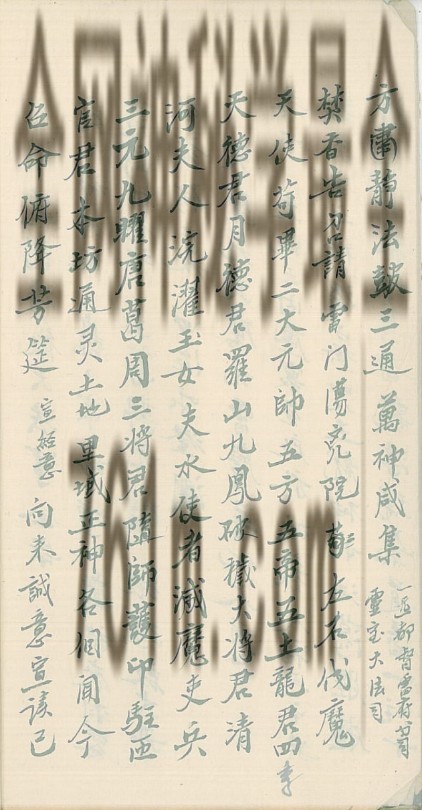 方肅靜法鼓三通 萬神咸集
一巡都督雷府司
靈宝大法司
焚香告召請雷门蕩兇院 左右伐魔
天使苟畢二大元帥五方五帝五土龍君四
天德君月德君羅山九鳳破穢大将君清
河夫人浣濯玉女 夫水使者滅魔吏兵
三元九曜唐葛周三将君隨師護印駐
官君 本坊通灵土地里域正神各個闻今
召命俯降芳筵 宣 意 向来誠意宣 已